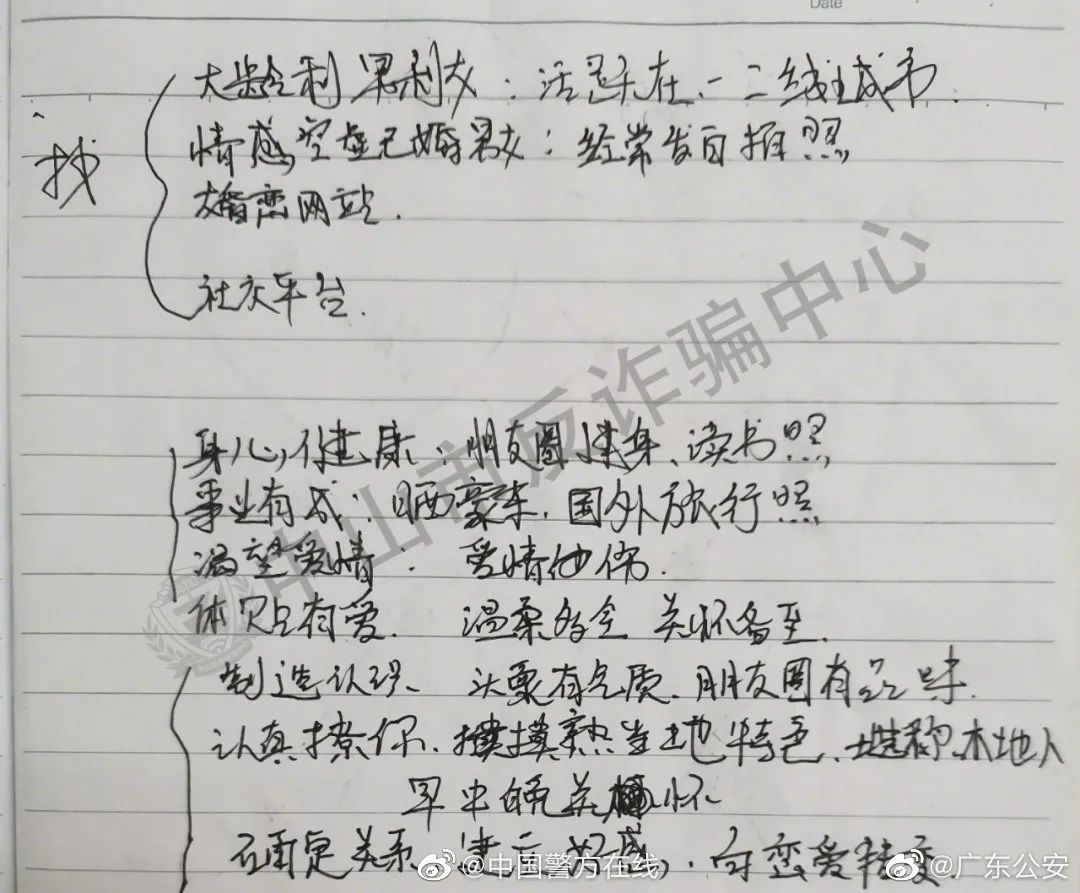 Date
找
大龄剩男剩女：活跃在一二线城市.
情感空虚已婚男女：经常发自拍照
婚恋网站.
社交平台.
身心健康：朋友圈健身、读书照
事业有成：晒豪车、国外旅行照
渴望爱情：爱情伤.
体贴有爱. 温柔多金 关怀备至.
制造认识、头像有气质、朋友圈有品味.
认真撩你、摸熟当地特色、谎称本地人
早中晚关怀
确定关系、建立好感，向恋爱转变
中山市反诈骗中心
@中国警方在线
@广东公安